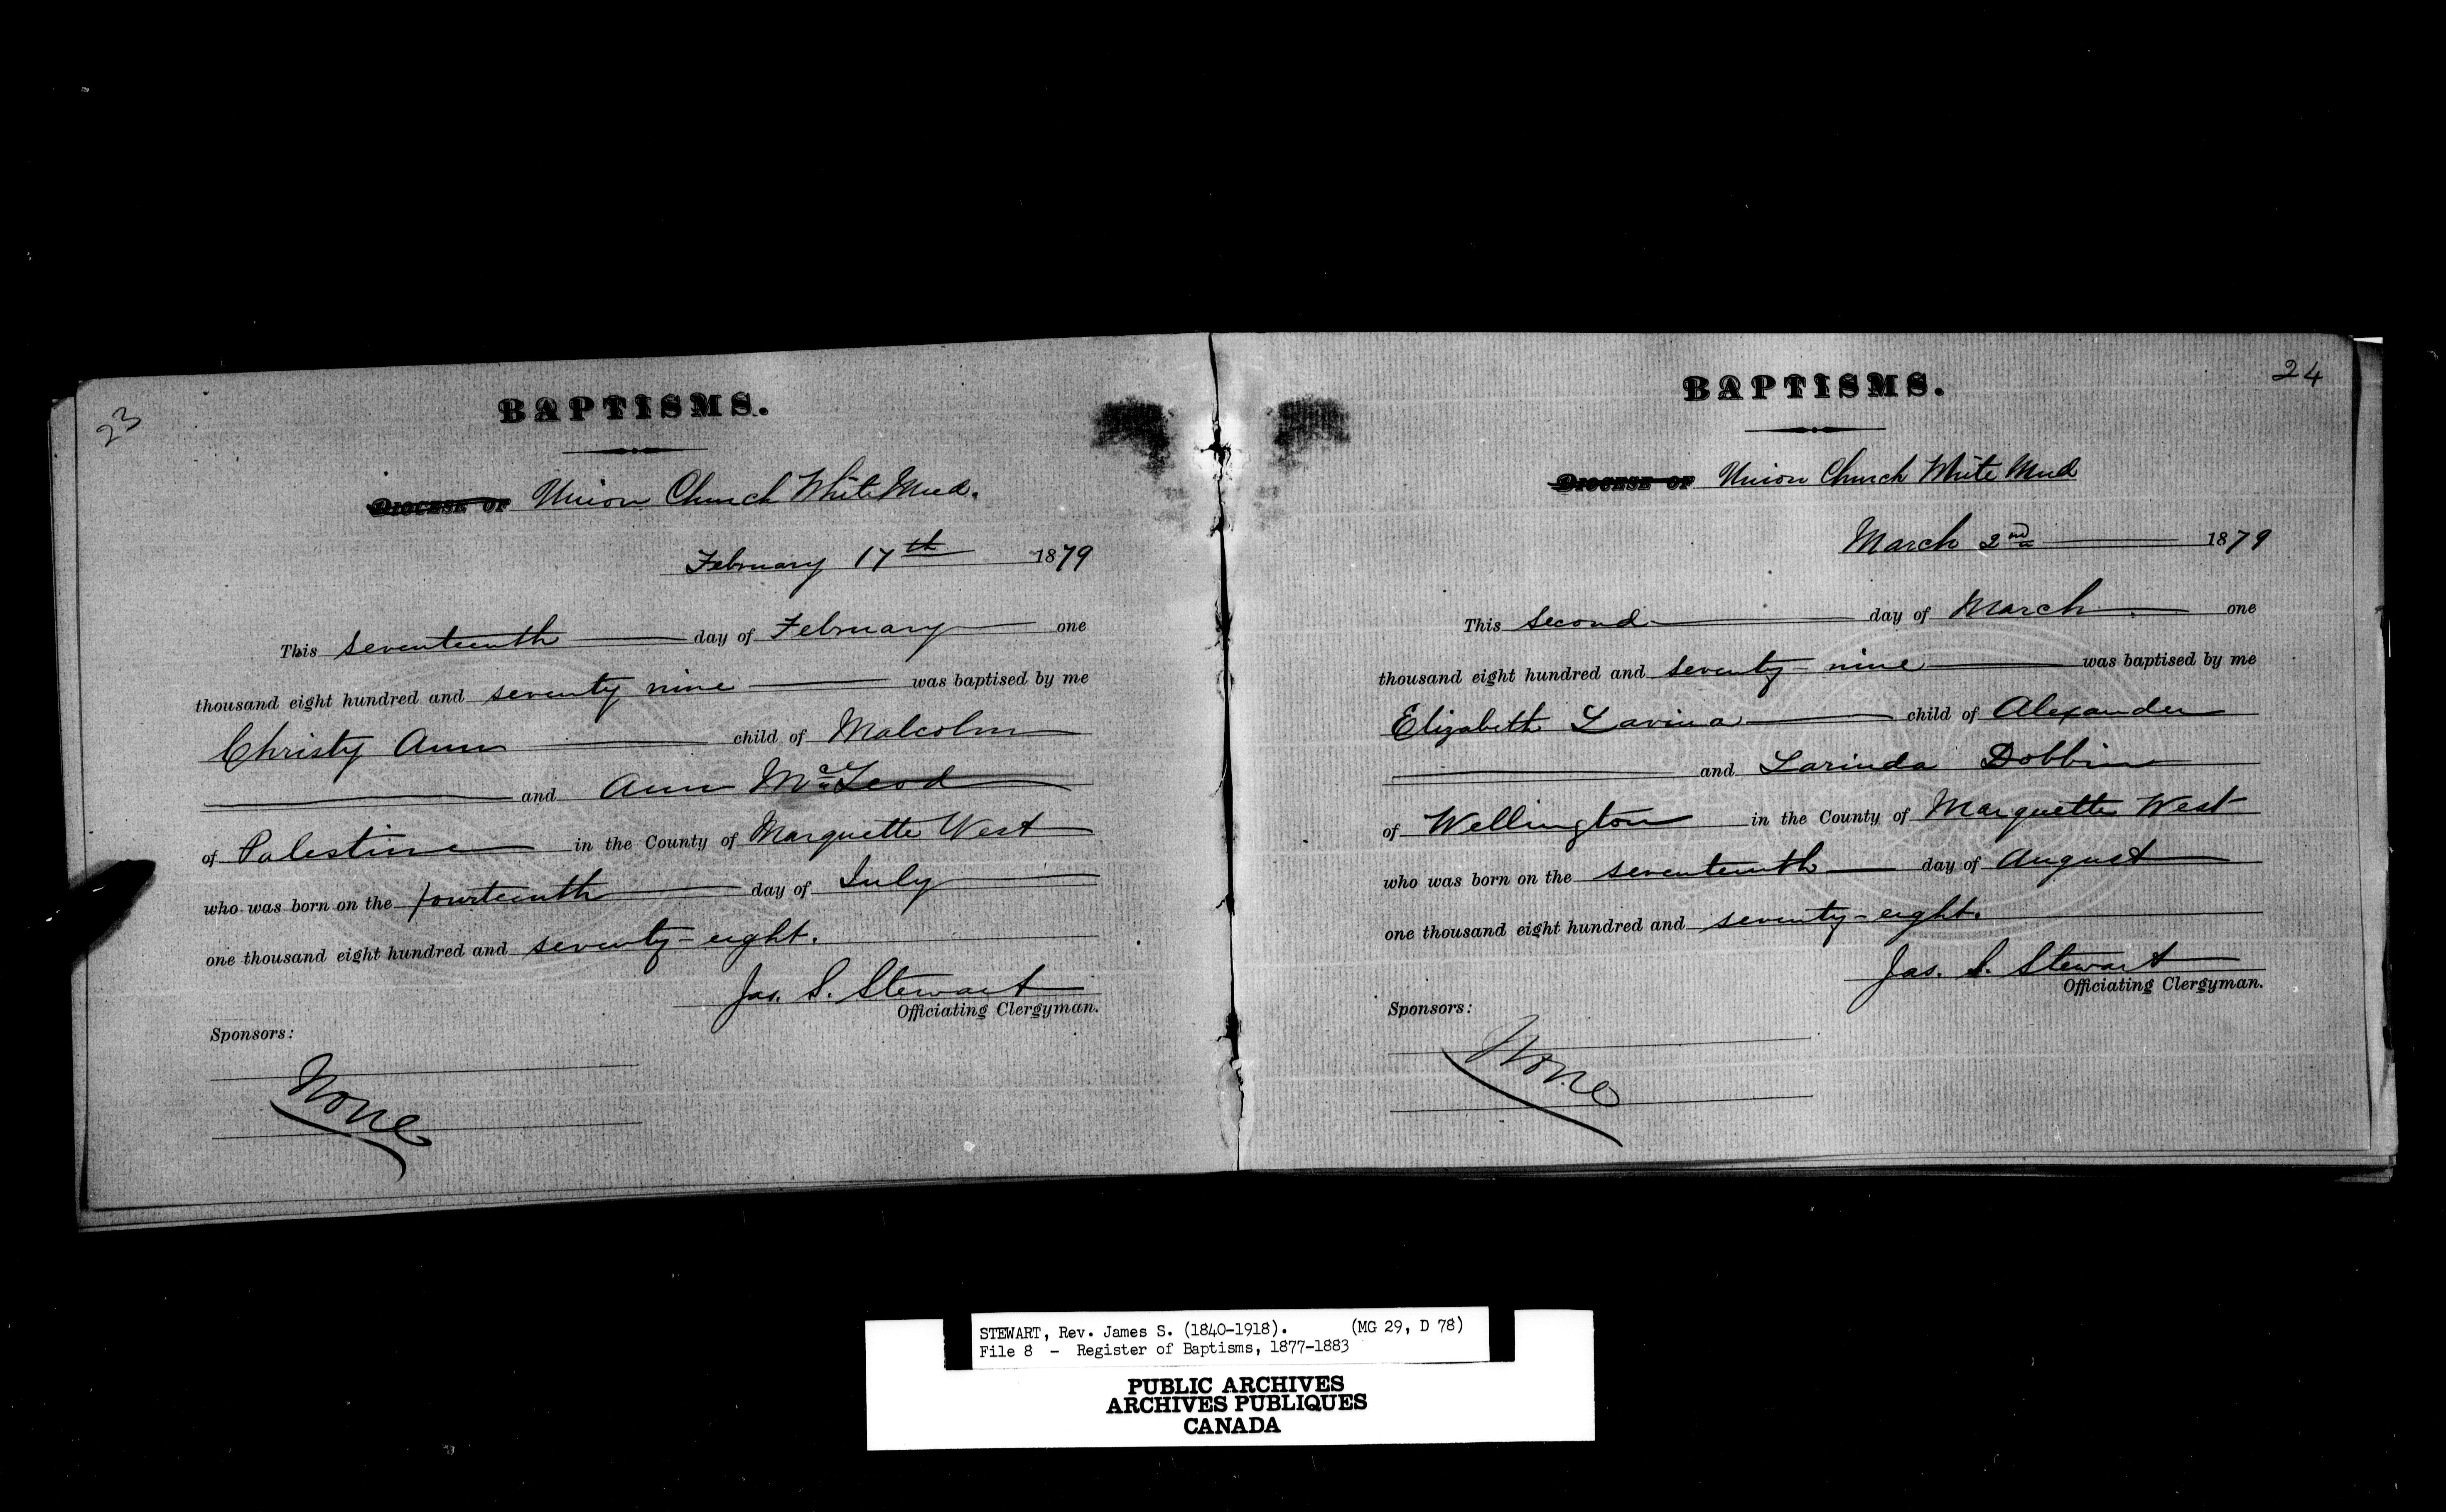 23
BAPTISMS.
DIOCESE OF Union Church White Mud.
February 17th 1879
This seventeenth day of February one
thousand eight hundred and seventy nine was baptised by me
Christy Ann child of Malcolm
and Ann McLeod
of Palestine in the County of Marquette West
who was born on the fourteenth day of July
one thousand eight hundred and seventy-eight.
Jas. S. Stewart
Officiating Clergyman.
Sponsors:
None
24
BAPTISMS.
DIOCESE OF Union Church White Mud
March 2nd 1879
This second day of March one
thousand eight hundred and seventy-nine was baptised by me
Elizabeth Lavina child of Alexander
and Larinda Dobbin
of Wellington in the County of Marquette West
who was born on the seventeenth day of August
one thousand eight hundred and seventy-eight.
Jas. S. Stewart
Officiating Clergyman.
Sponsors:
None
STEWART, Rev. James S. (1840-1918). (MG 29, D 78)
File 8 - Register of Baptisms, 1877-1883
PUBLIC ARCHIVES
ARCHIVES PUBLIQUES
CANADA